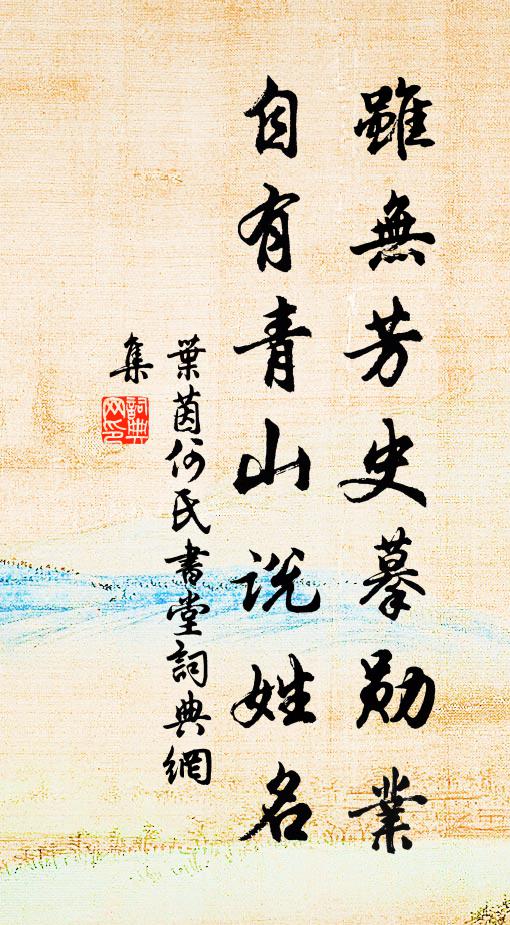 雖無芳史摹勛業
自有青山說姓名
葉茵何氏書堂詞典網
集
詞典
网印